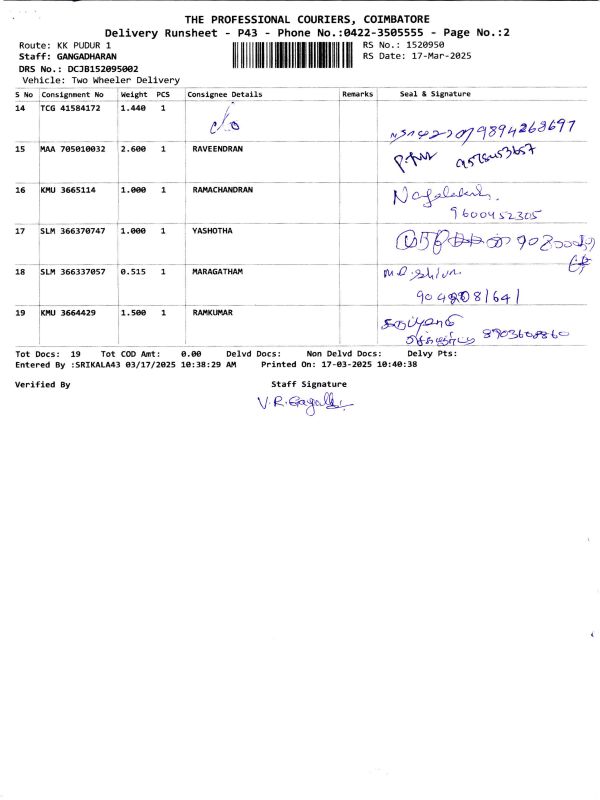 THE PROFESSIONAL COURIERS, COIMBATORE
Delivery Runsheet - P43 - Phone No.:0422-3505555 - Page No.:2
Route: KK PUDUR 1 RS No.: 1520950
Staff: GANGADHARAN RS Date: 17-Mar-2025
DRS No.: DCJB152095002
Vehicle: Two Wheeler Delivery
S No Consignment No Weight PCS Consignee Details Remarks Seal & Signature
14 TCG 41584172 1.440 1 c/o
9894268697
15 MAA 705010032 2.600 1 RAVEENDRAN
16 KMU 3665114 1.000 1 RAMACHANDRAN
9600452305
17 SLM 366370747 1.000 1 YASHOTHA
18 SLM 366337057 0.515 1 MARAGATHAM
19 KMU 3664429 1.500 1 RAMKUMAR
8903608860
Tot Docs: 19 Tot COD Amt: 0.00 Delvd Docs: Non Delvd Docs: Delvy Pts:
Entered By :SRIKALA43 03/17/2025 10:38:29 AM Printed On: 17-03-2025 10:40:38
Verified By Staff Signature